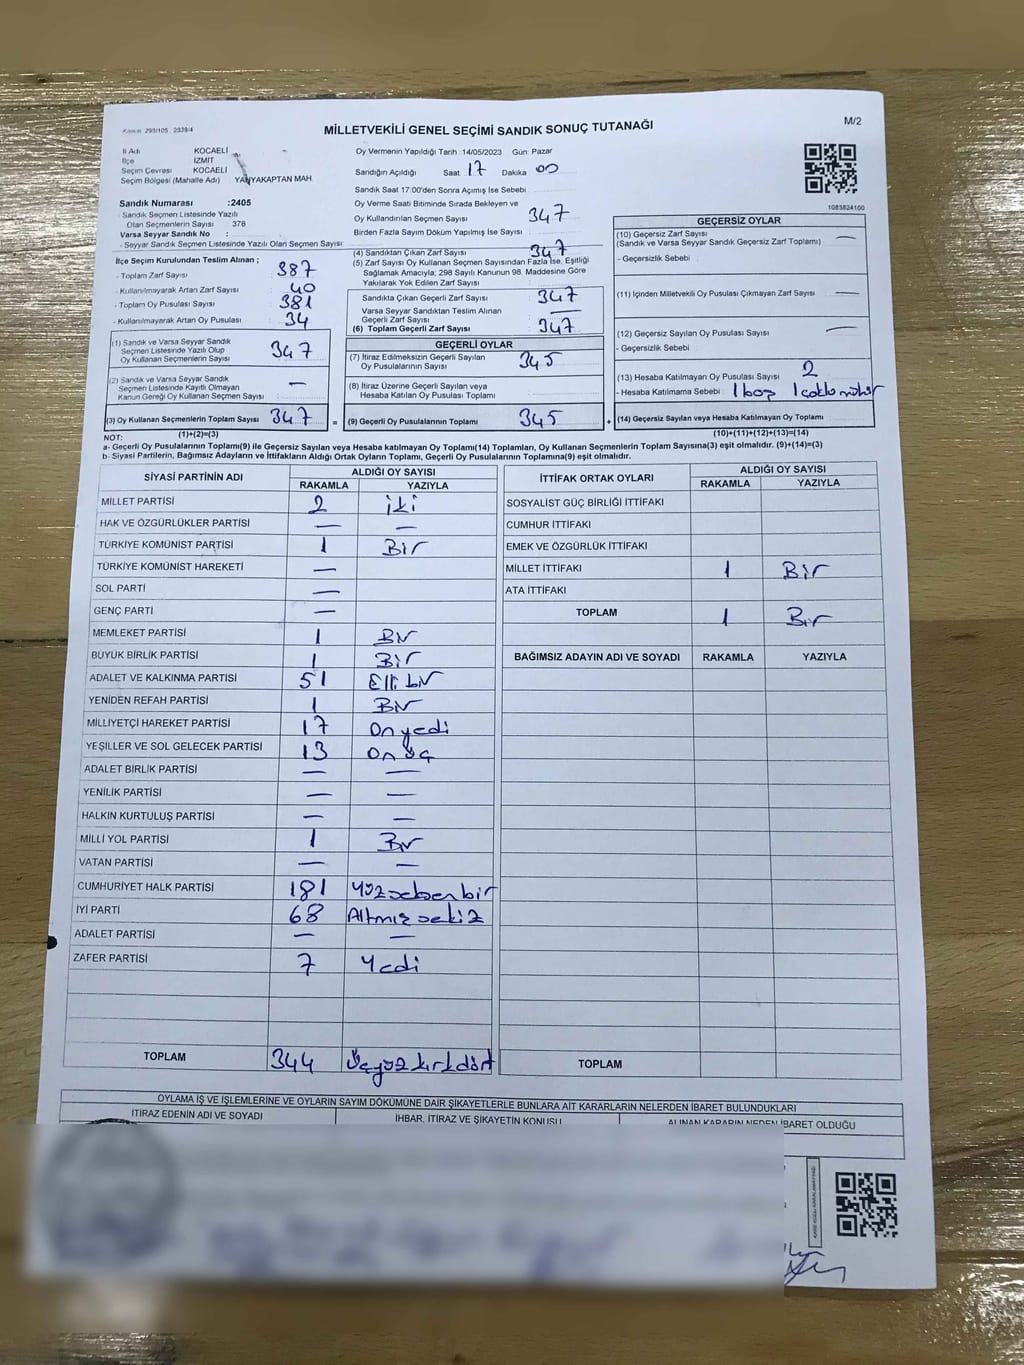 MİLLETVEKİLİ GENEL SEÇİMİ SANDIK SONUÇ TUTANAĞI
M/2
İl Adı KOCAELİ
İlçe İZMİT
Seçim Çevresi KOCAELİ
Seçim Bölgesi (Mahalle Adı) YAHYAKAPTAN MAH
Sandık Numarası :2405
Sandık Seçmen Listesinde Yazılı
Olan Seçmenlerin Sayısı 378
Varsa Seyyar Sandık No :
- Seyyar Sandık Seçmen Listesinde Yazılı Olan Seçmen Sayısı:
Oy Vermenin Yapıldığı Tarih :14/05/2023 Gün: Pazar
Sandığın Açıldığı Saat 17 Dakika 00
Sandık Saat 17:00'den Sonra Açılmış İse Sebebi
Oy Verme Saati Bitiminde Sırada Bekleyen ve
Oy Kullandırılan Seçmen Sayısı 347
Birden Fazla Sayım Döküm Yapılmış İse Sayısı
1083824100
İlçe Seçim Kurulundan Teslim Alınan ;
- Toplam Zarf Sayısı 387
- Kullanılmayarak Artan Zarf Sayısı 40
- Toplam Oy Pusulası Sayısı 381
- Kullanılmayarak Artan Oy Pusulası 34
(1) Sandık ve Varsa Seyyar Sandık
Seçmen Listesinde Yazılı Olup
Oy Kullanan Seçmenlerin Sayısı 347
(2) Sandık ve Varsa Seyyar Sandık
Seçmen Listesinde Kayıtlı Olmayan
Kanun Gereği Oy Kullanan Seçmen Sayısı —
(3) Oy Kullanan Seçmenlerin Toplam Sayısı 347
(1)+(2)=(3)
(4) Sandıktan Çıkan Zarf Sayısı 347
(5) Zarf Sayısı Oy Kullanan Seçmen Sayısından Fazla İse, Eşitliği
Sağlamak Amacıyla; 298 Sayılı Kanunun 98. Maddesine Göre
Yakılarak Yok Edilen Zarf Sayısı
Sandıkta Çıkan Geçerli Zarf Sayısı 347
Varsa Seyyar Sandıktan Teslim Alınan
Geçerli Zarf Sayısı —
(6) Toplam Geçerli Zarf Sayısı 347
GEÇERLİ OYLAR
(7) İtiraz Edilmeksizin Geçerli Sayılan
Oy Pusulalarının Sayısı 345
(8) İtiraz Üzerine Geçerli Sayılan veya
Hesaba Katılan Oy Pusulası Toplamı
= (9) Geçerli Oy Pusulalarının Toplamı 345
GEÇERSİZ OYLAR
(10) Geçersiz Zarf Sayısı —
(Sandık ve Varsa Seyyar Sandık Geçersiz Zarf Toplamı)
- Geçersizlik Sebebi
(11) İçinden Milletvekili Oy Pusulası Çıkmayan Zarf Sayısı —
(12) Geçersiz Sayılan Oy Pusulası Sayısı —
- Geçersizlik Sebebi
(13) Hesaba Katılmayan Oy Pusulası Sayısı 2
- Hesaba Katılmama Sebebi 1 boş 1 çoklu mühür
+ (14) Geçersiz Sayılan veya Hesaba Katılmayan Oy Toplamı
(10)+(11)+(12)+(13)=(14)
NOT:
a- Geçerli Oy Pusulalarının Toplamı(9) ile Geçersiz Sayılan veya Hesaba katılmayan Oy Toplamı(14) Toplamları, Oy Kullanan Seçmenlerin Toplam Sayısına(3) eşit olmalıdır. (9)+(14)=(3)
b- Siyasi Partilerin, Bağımsız Adayların ve İttifakların Aldığı Ortak Oyların Toplamı, Geçerli Oy Pusulalarının Toplamına(9) eşit olmalıdır.
SİYASİ PARTİNİN ADI ALDIĞI OY SAYISI
RAKAMLA YAZIYLA
MİLLET PARTİSİ 2 iki
HAK VE ÖZGÜRLÜKLER PARTİSİ — —
TÜRKİYE KOMÜNİST PARTİSİ 1 Bir
TÜRKİYE KOMÜNİST HAREKETİ —
SOL PARTİ —
GENÇ PARTİ —
MEMLEKET PARTİSİ 1 Bir
BÜYÜK BİRLİK PARTİSİ 1 Bir
ADALET VE KALKINMA PARTİSİ 51 Elli bir
YENİDEN REFAH PARTİSİ 1 Bir
MİLLİYETÇİ HAREKET PARTİSİ 17 Onyedi
YEŞİLLER VE SOL GELECEK PARTİSİ 13 On üç
ADALET BİRLİK PARTİSİ — —
YENİLİK PARTİSİ — —
HALKIN KURTULUŞ PARTİSİ — —
MİLLİ YOL PARTİSİ 1 Bir
VATAN PARTİSİ — —
CUMHURİYET HALK PARTİSİ 181 Yüzseksenbir
İYİ PARTİ 68 Altmış sekiz
ADALET PARTİSİ — —
ZAFER PARTİSİ 7 Yedi
TOPLAM 344 Üçyüzkırkdört
İTTİFAK ORTAK OYLARI ALDIĞI OY SAYISI
RAKAMLA YAZIYLA
SOSYALİST GÜÇ BİRLİĞİ İTTİFAKI
CUMHUR İTTİFAKI
EMEK VE ÖZGÜRLÜK İTTİFAKI
MİLLET İTTİFAKI 1 Bir
ATA İTTİFAKI
TOPLAM 1 Bir
BAĞIMSIZ ADAYIN ADI VE SOYADI RAKAMLA YAZIYLA
TOPLAM
OYLAMA İŞ VE İŞLEMLERİNE VE OYLARIN SAYIM DÖKÜMÜNE DAİR ŞİKAYETLERLE BUNLARA AİT KARARLARIN NELERDEN İBARET BULUNDUKLARI
İTİRAZ EDENİN ADI VE SOYADI
İHBAR, İTİRAZ VE ŞİKAYETİN KONUSU
ALINAN KARARIN NEDEN İBARET OLDUĞU